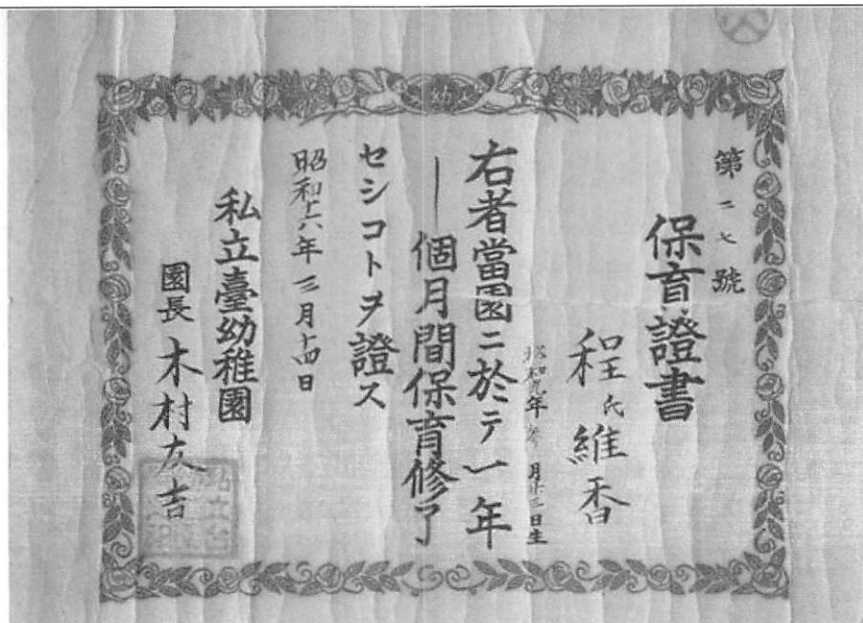 第二七號
保育證書
程氏維香
昭和九年 月廿三日生
右者當園ニ於テ一年
一個月間保育修了
セシコトヲ證ス
昭和十六年三月十四日
私立臺幼稚園
園長 木村友吉
幼